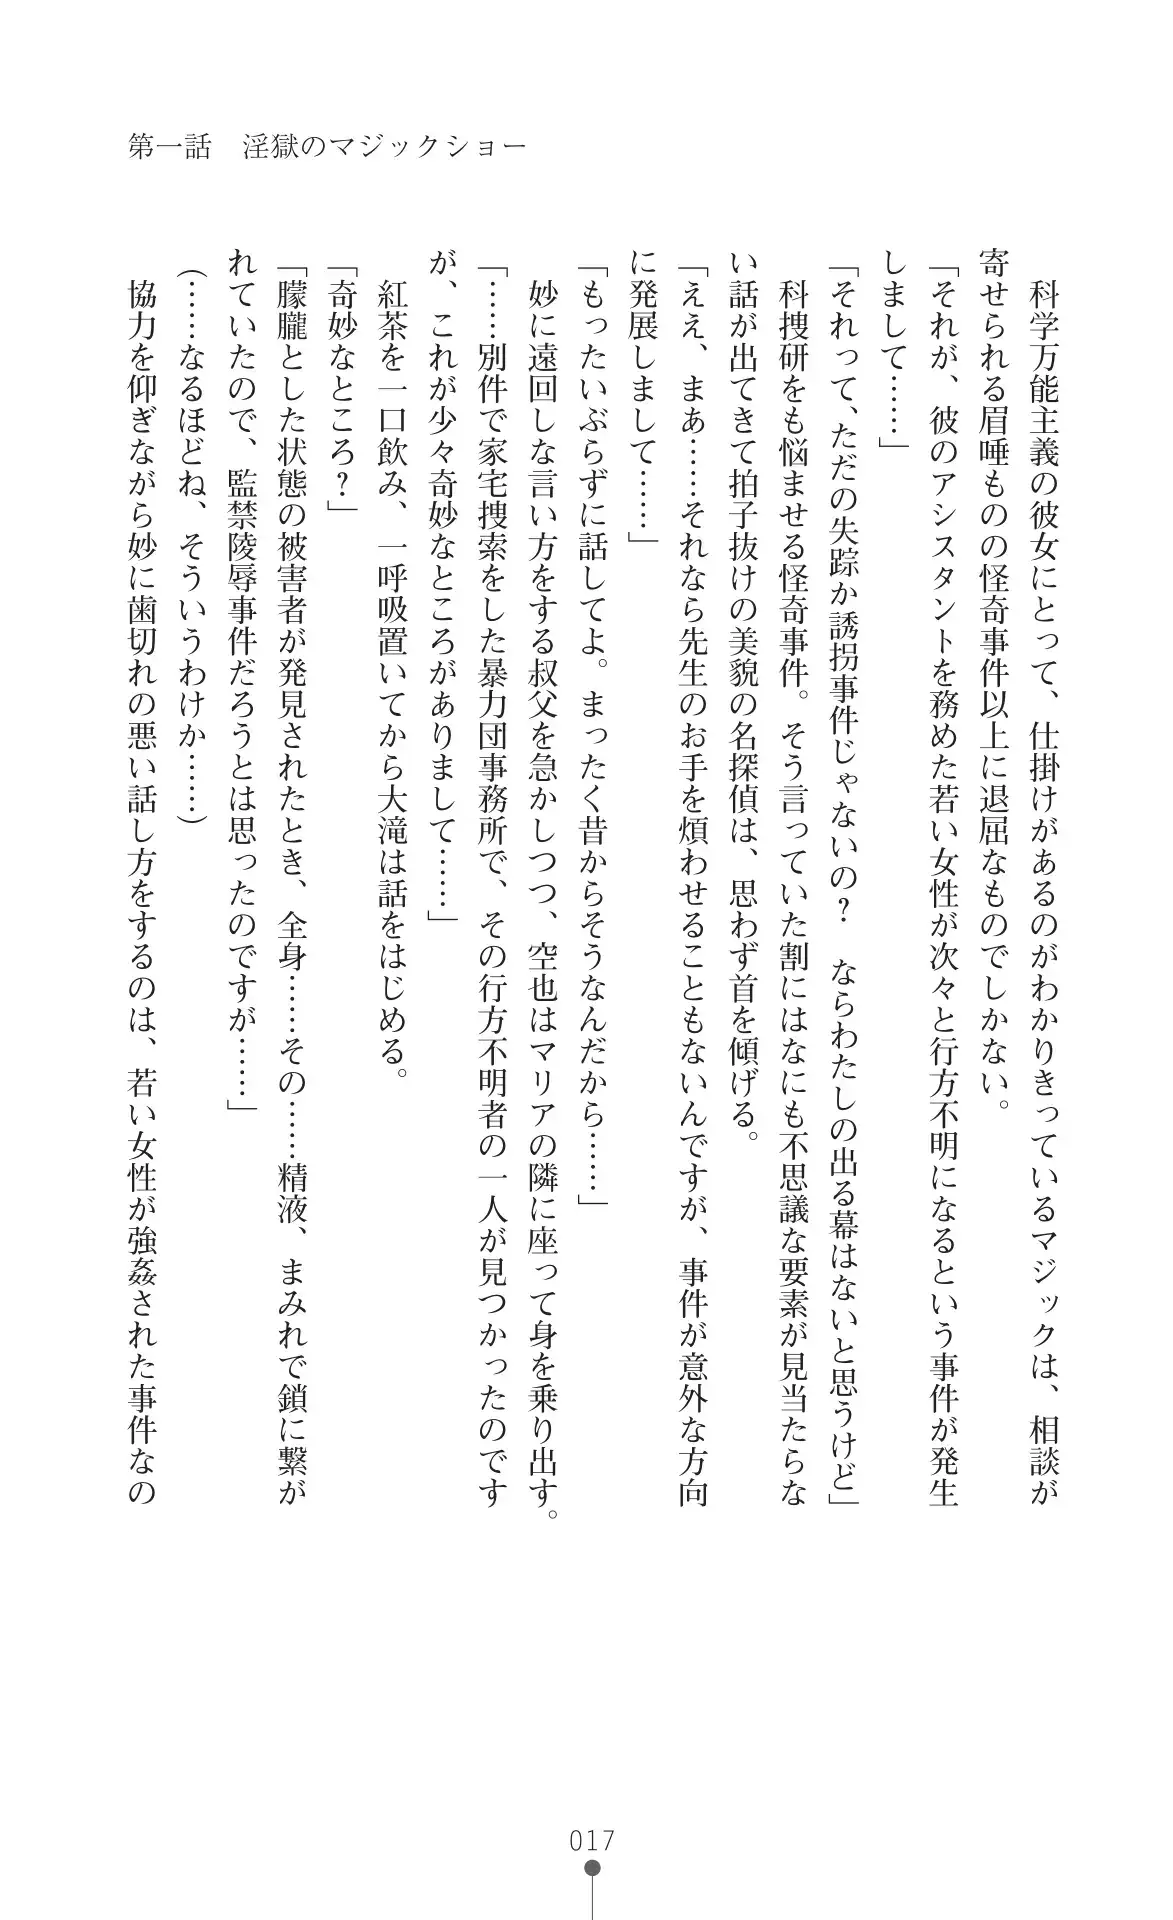 第一話　淫獄のマジックショー
　科学万能主義の彼女にとって、仕掛けがあるのがわかりきっているマジックは、相談が
寄せられる眉唾ものの怪奇事件以上に退屈なものでしかない。
「それが、彼のアシスタントを務めた若い女性が次々と行方不明になるという事件が発生
しまして……」
「それって、ただの失踪か誘拐事件じゃないの？　ならわたしの出る幕はないと思うけど」
　科捜研をも悩ませる怪奇事件。そう言っていた割にはなにも不思議な要素が見当たらな
い話が出てきて拍子抜けの美貌の名探偵は、思わず首を傾げる。
「ええ、まあ……それなら先生のお手を煩わせることもないんですが、事件が意外な方向
に発展しまして……」
「もったいぶらずに話してよ。まったく昔からそうなんだから……」
　妙に遠回しな言い方をする叔父を急かしつつ、空也はマリアの隣に座って身を乗り出す。
「……別件で家宅捜索をした暴力団事務所で、その行方不明者の一人が見つかったのです
が、これが少々奇妙なところがありまして……」
　紅茶を一口飲み、一呼吸置いてから大滝は話をはじめる。
「奇妙なところ？」
「朦朧とした状態の被害者が発見されたとき、全身……その……精液、まみれで鎖に繋が
れていたので、監禁陵辱事件だろうとは思ったのですが……」
（……なるほどね、そういうわけか……）
　協力を仰ぎながら妙に歯切れの悪い話し方をするのは、若い女性が強姦された事件なの
017